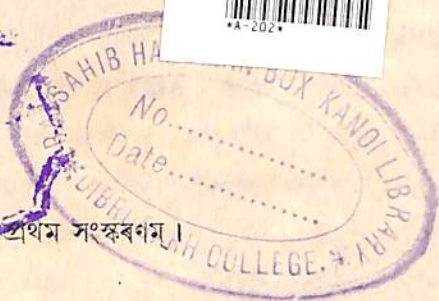 *A-202*
SAHIB HA BOX KANOI LIBRARY
No..................
Date..................
COLLEGE.
প্ৰথম সংস্কৰণম্।